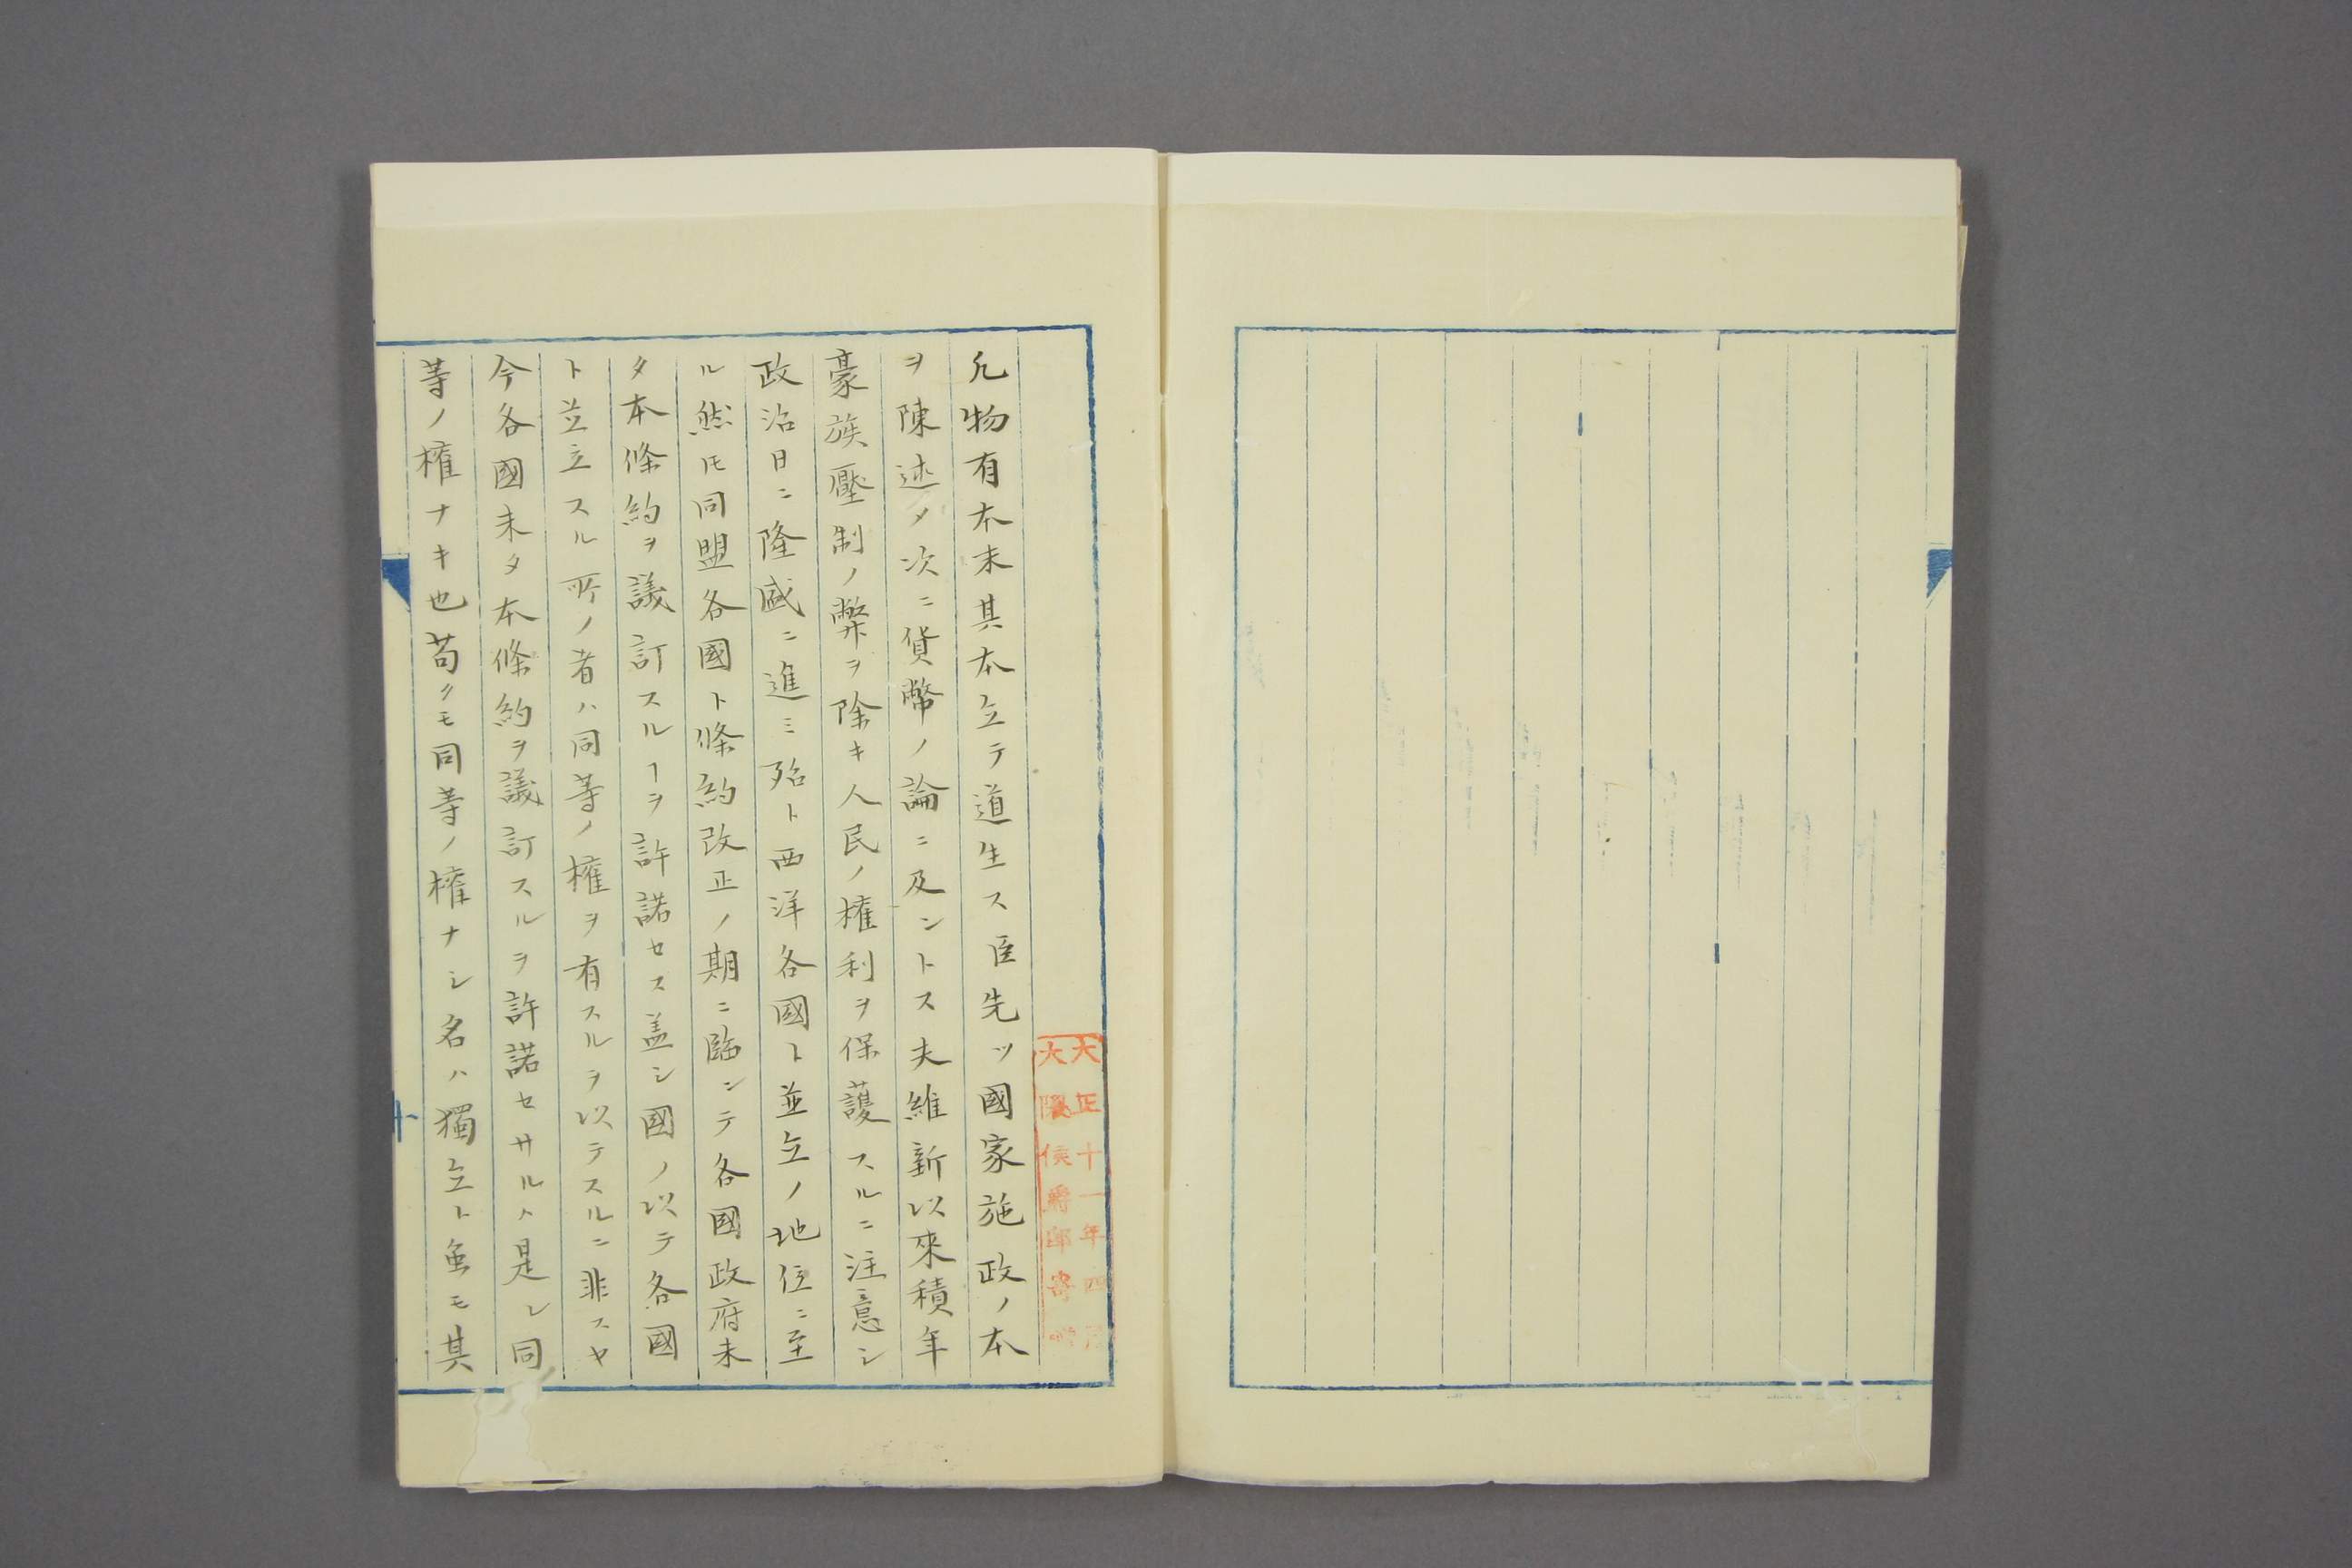 大正十一年四月
大隈侯爵邸寄贈
凡物有本末其本立テ道生ス臣先ツ國家施政ノ本
ヲ陳述メ次ニ貨幣ノ論ニ及ントス夫維新以來積年
豪族壓制ノ弊ヲ除キ人民ノ權利ヲ保護スルニ注意シ
政治日ニ隆盛ニ進ミ殆ト西洋各國ト並立ノ地位ニ至
ル然ㇳモ同盟各國ト條約改正ノ期ニ臨ンテ各國政府未
タ本條約ヲ議訂スルヿヲ許諾セス盖シ國ノ以テ各國
ト並立スル所ノ者ハ同等ノ權ヲ有スルヲ以テスルニ非スヤ
今各國未タ本條約ヲ議訂スルヲ許諾セサルハ是レ同
等ノ權ナキ也苟クモ同等ノ權ナシ名ハ獨立ト虽モ其